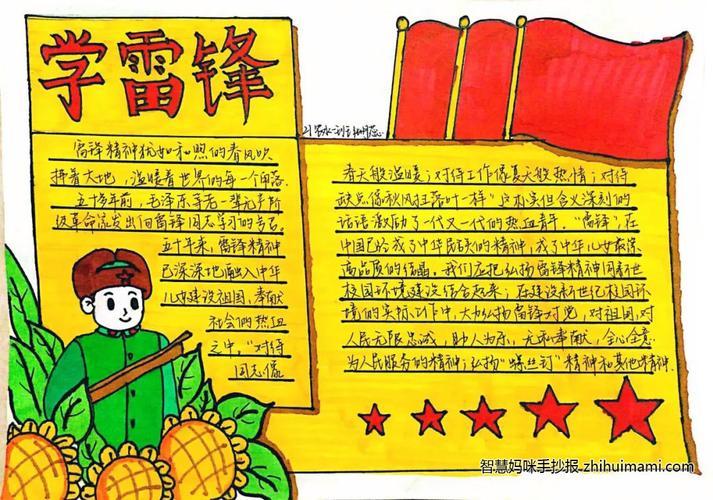 学雷锋
雷锋精神犹如和煦的春风吹
拂着大地，温暖着世界的每一个角落.
五十多年前，毛泽东等老一辈无产阶
级革命流发出向雷锋同志学习的号召.
五十年来，雷锋精神
已深深地融入中华
儿女建设祖国，奉献
社会的热血
之中，"对待
同志像
春天般温暖；对待工作像夏天般热情；对待
缺点像秋风扫落叶一样"这朴实但含义深刻的
话语激励了一代又一代的热血青年．"雷锋"，在
中国已经成了中华民族的精神，成了中华儿女最深
高品质的结晶，我们应把弘扬雷锋精神同
校园环境建设结合起来；在建设新世纪校园环
境的实际工作中，大力弘扬雷锋对党，对祖国，对
人民无限忠诚，助人为乐，无私奉献，全心全意
为人民服务的精神；弘扬"螺丝钉"精神和其他精神
智慧妈咪手抄报 zhihuimami.com